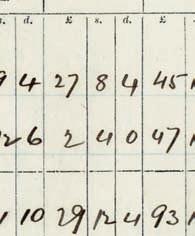 s. d. £ s. d. £
9 4 27 8 4 45
12 6 2 4 0 47
10 29 12 4 93